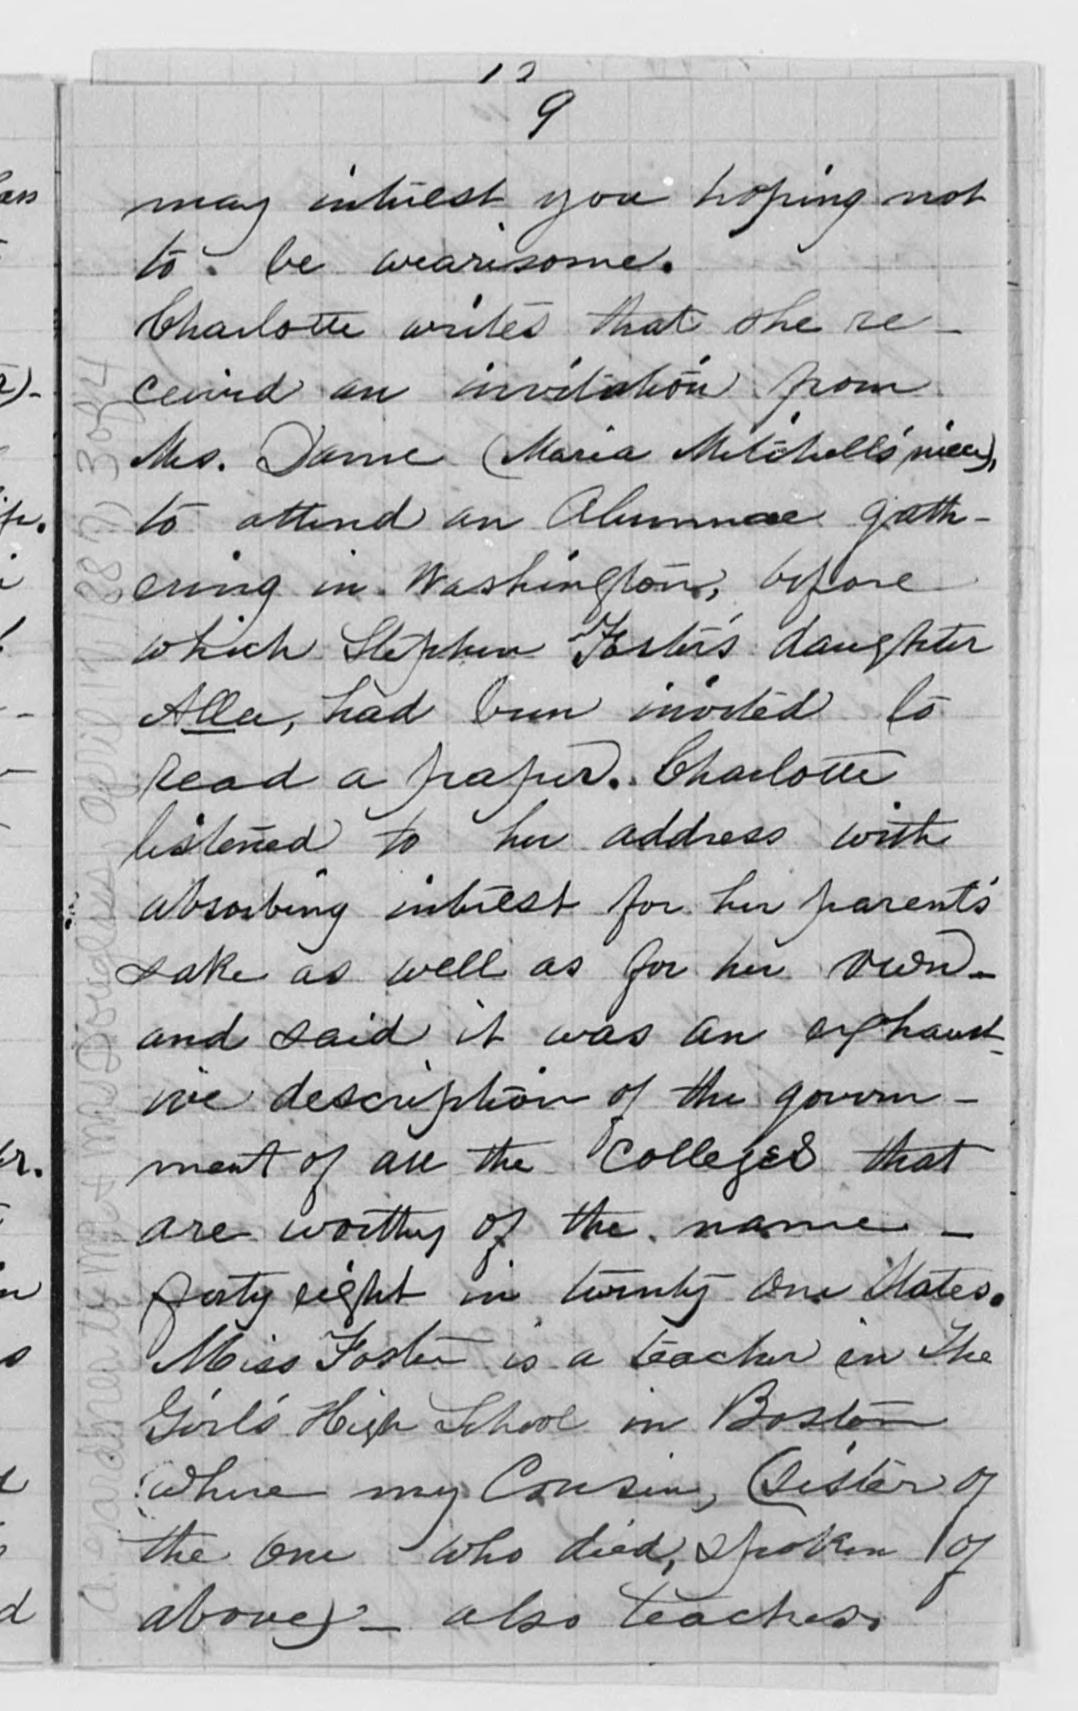 12
9
may interest you hoping not
to be wearisome.
Charlotte writes that she re-
ceived an invitation from
Mrs. Dame (Maria Mitchell's niece),
to attend an Alumnae gath-
ering in Washington, before
which Stephen Foster's daughter
Alla, had been invited to
read a paper. Charlotte
listened to her address with
absorbing interest for her parent's
sake as well as for her own-
and said it was an exhaust-
ive description of the govern-
ment of all the Colleges that
are worthy of the name -
forty eight in twenty one States.
Miss Foster is a teacher in The
Girl's High School in Boston
where my Cousin, (Sister of
the one who died, spoken of
above) - also teaches.